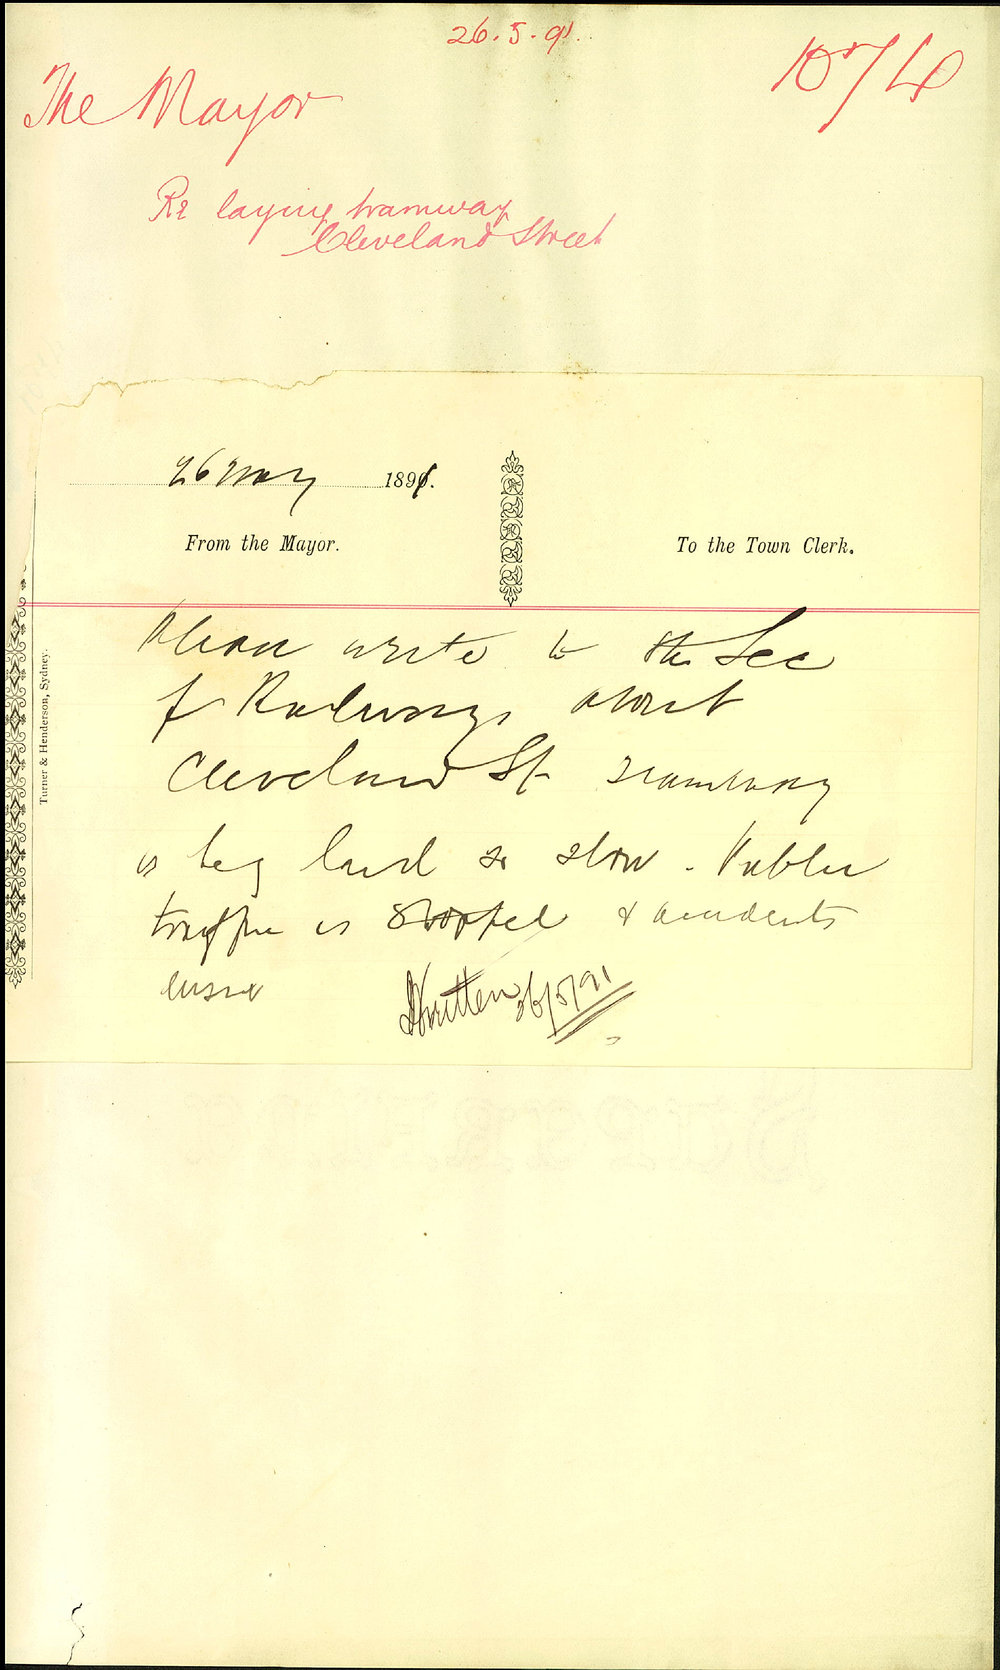 26.5.91.
The Mayor
Re laying tramway
Cleveland Street
26 May 1891.
From the Mayor.
To the Town Clerk.
Turner & Henderson, Sydney.
Please write to the Sec
of Railways about
Cleveland St Tramway
is beg laid so slow. Public
traffic is stopped & accidents
Written 26/5/91